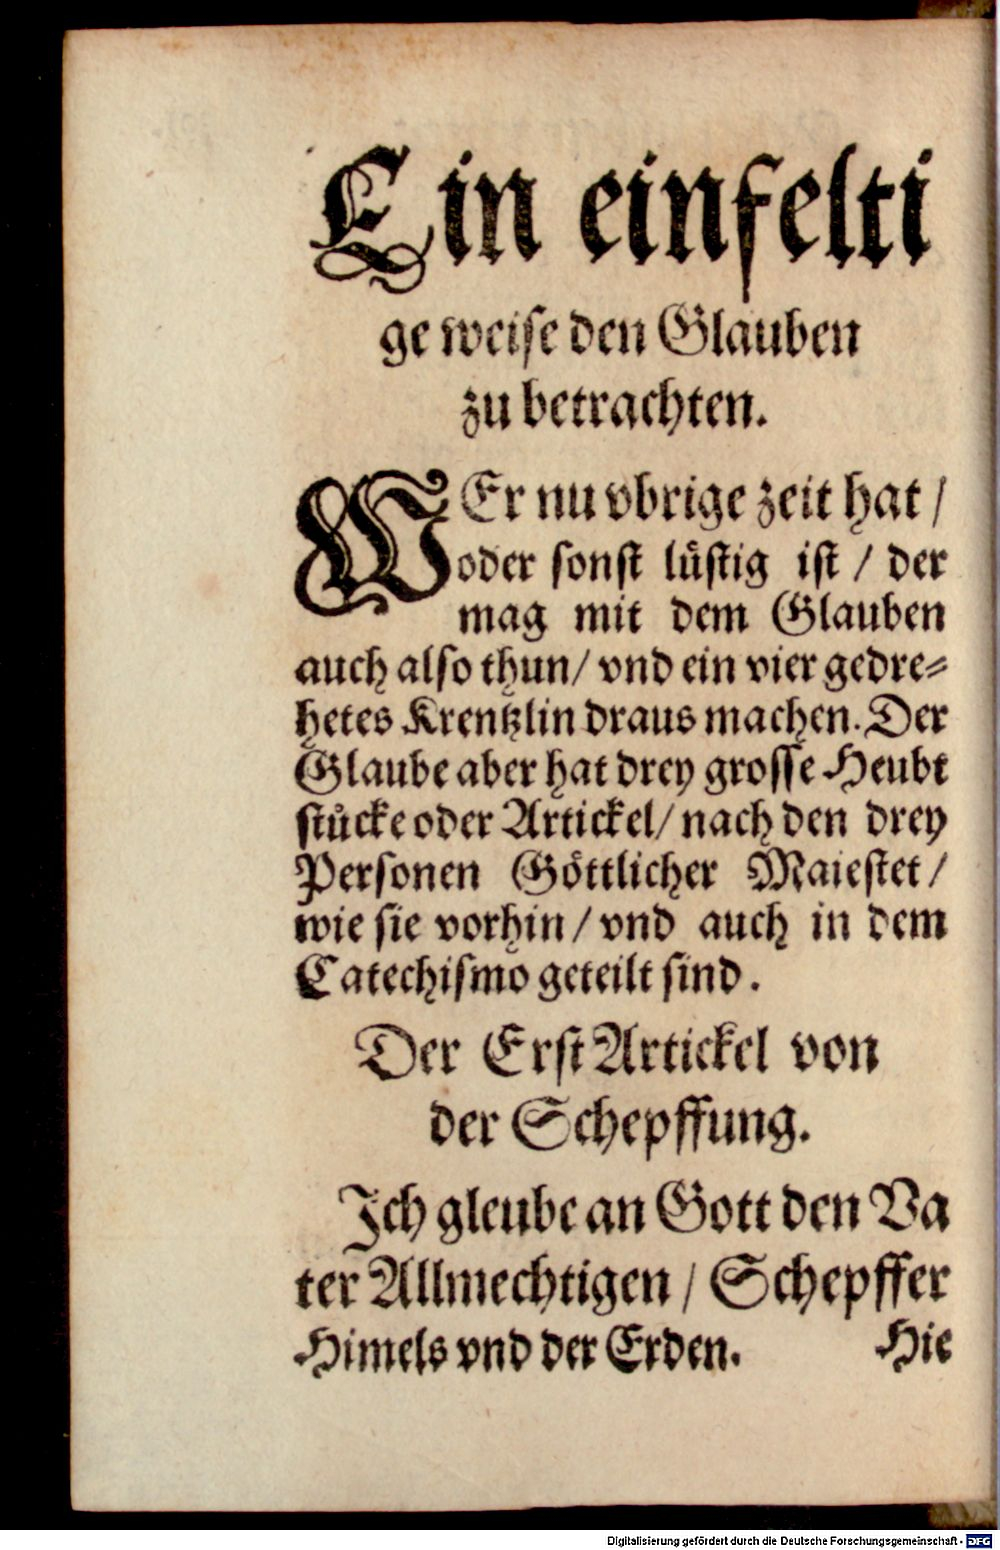 Ein einfelti
ge weise den Glauben
zu betrachten.
WEr nu vbrige zeit hat /
oder sonst lüstig ist / der
mag mit dem Glauben
auch also thun / vnd ein vier gedre=
hetes Krentzlin draus machen. Der
Glaube aber hat drey grosse Heubt
stücke oder Artickel / nach den drey
Personen Göttlicher Maiestet /
wie sie vorhin / vnd auch in dem
Catechismo geteilt sind.
Der Erst Artickel von
der Schepffung.
Ich gleube an Gott den Va
ter Allmechtigen / Schepffer
Himels vnd der Erden. Hie
Digitalisierung gefördert durch die Deutsche Forschungsgemeinschaft - DFG